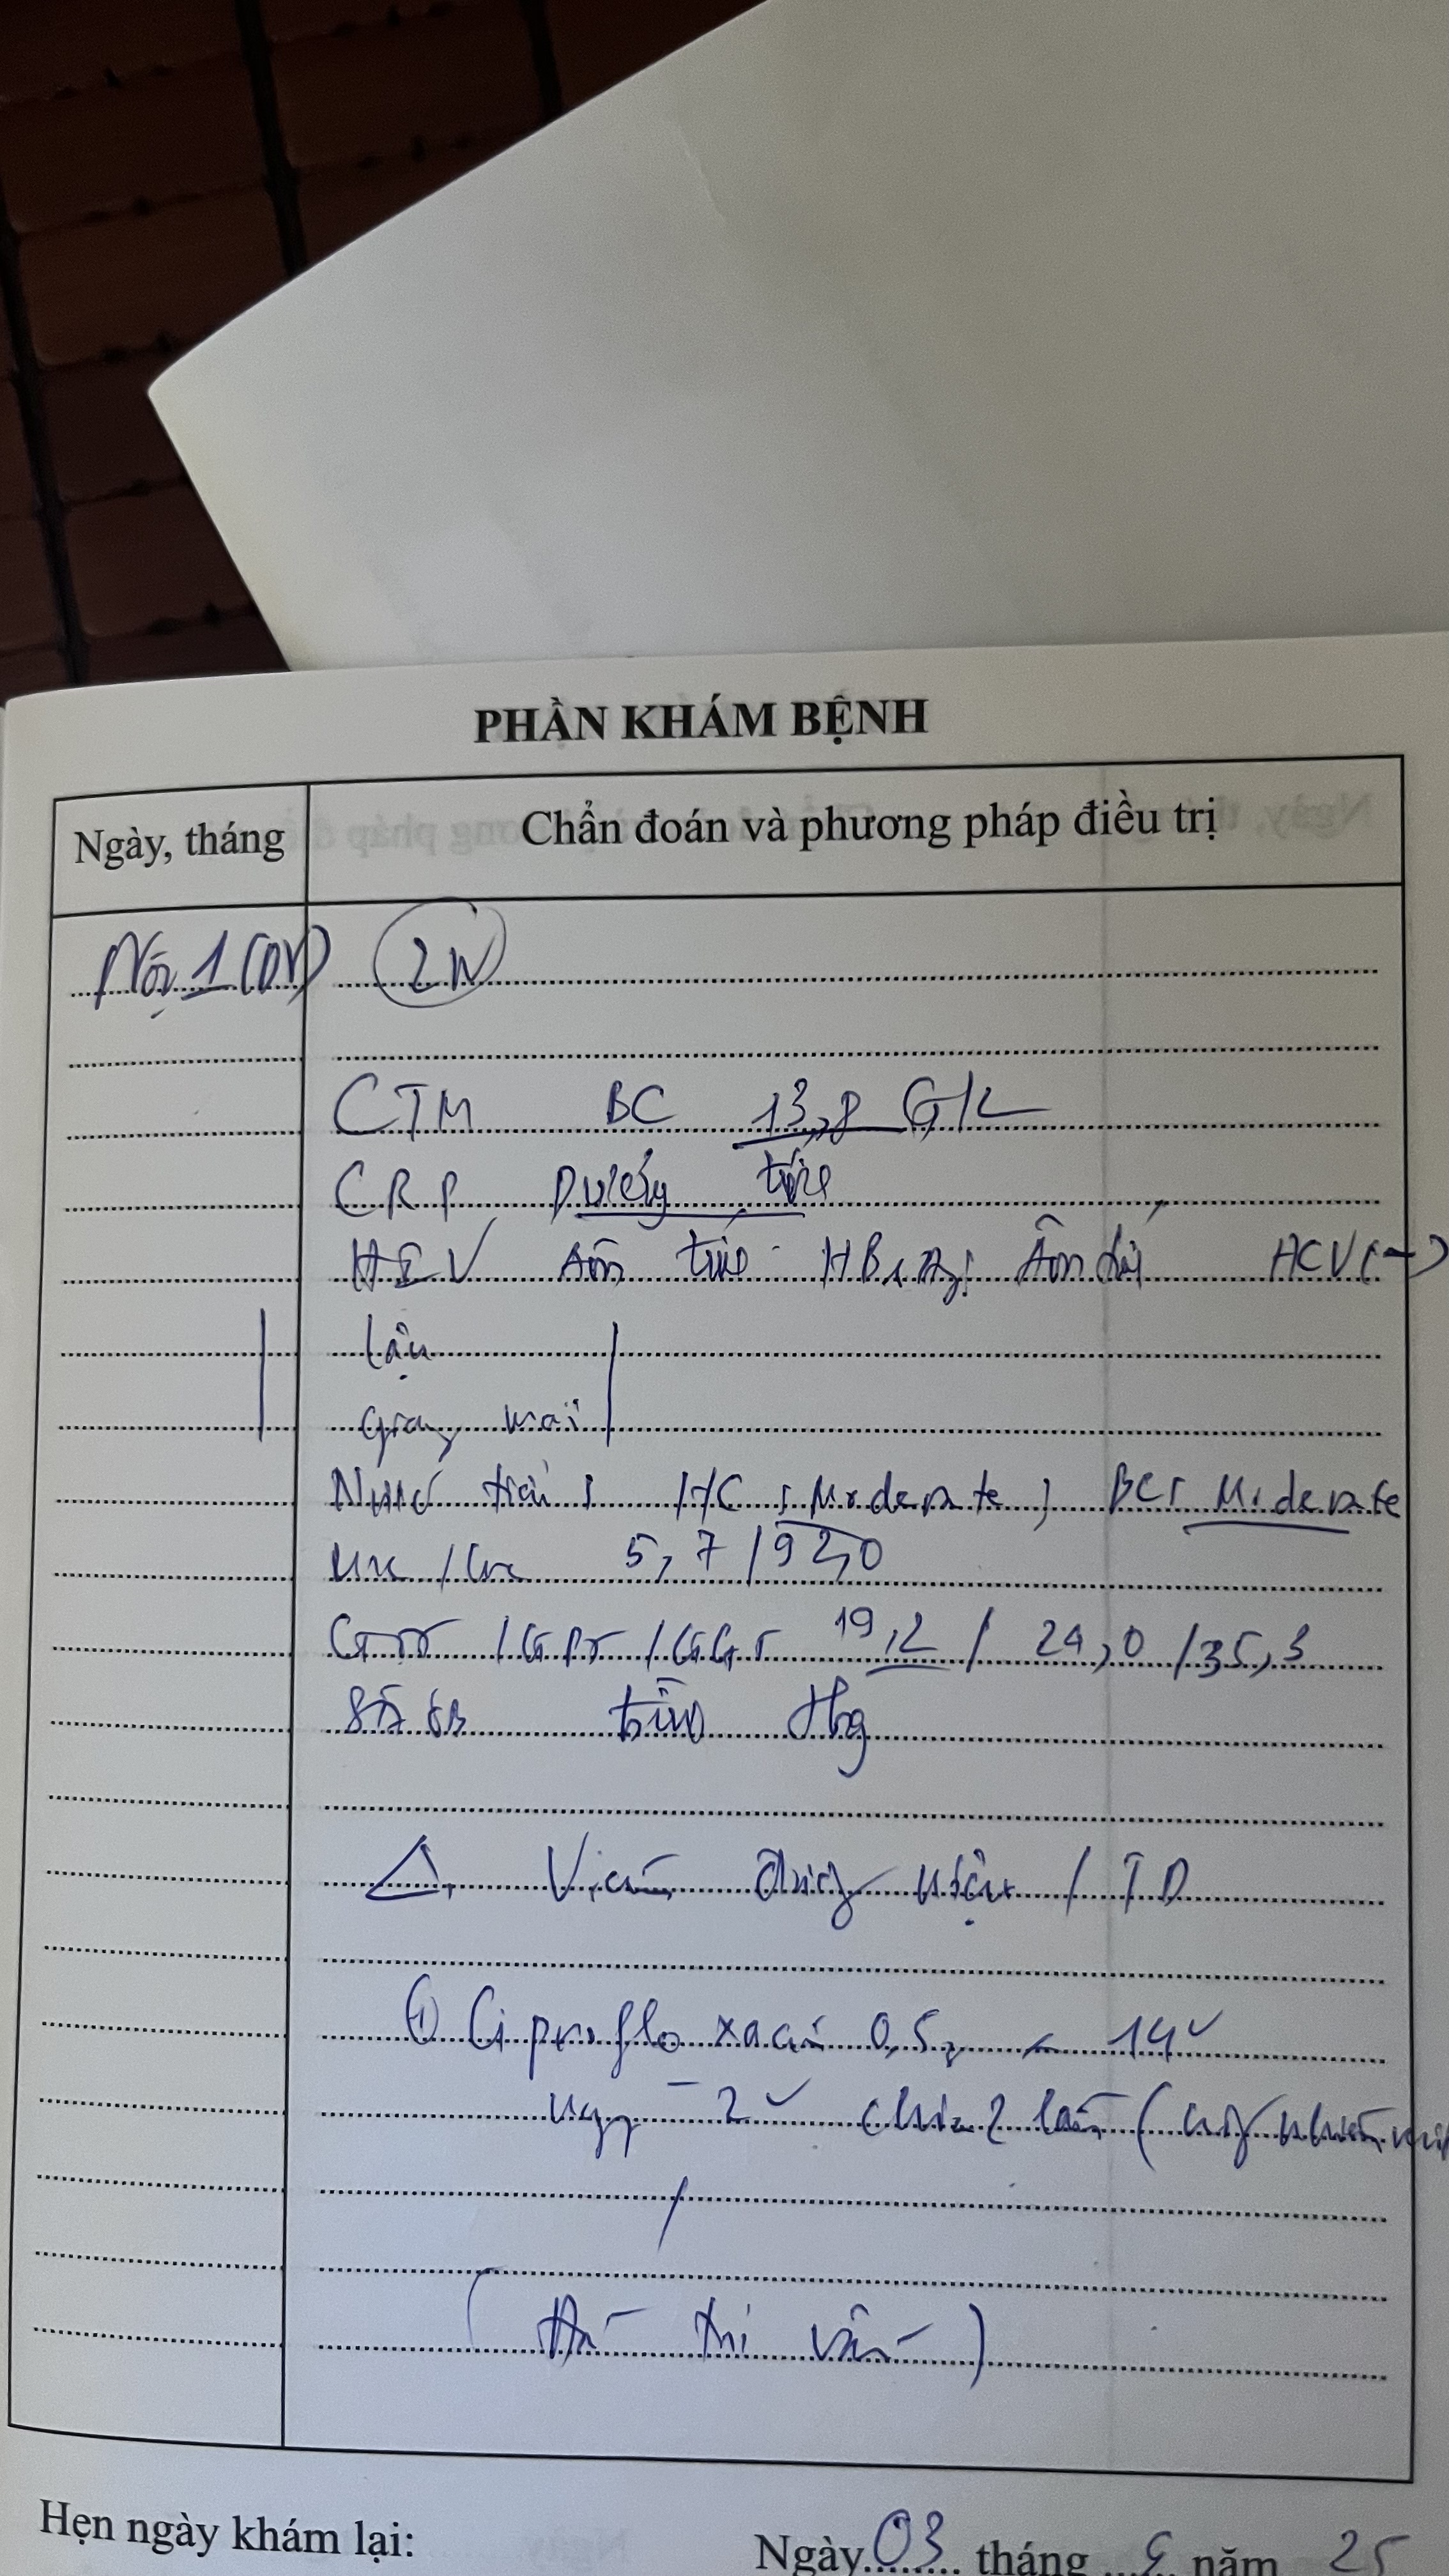 PHẦN KHÁM BỆNH
Ngày, tháng
Chẩn đoán và phương pháp điều trị
Nội 1 (DV)
CTM BC 13,8 G/L
CRP Dương tính
HIV Âm tính HBsAg: Âm tính HCV (-)
Lậu
Giang mai
Nước tiểu: HC: Moderate, BC: Moderate
Ure/Cre 5,7/92,0
GOT/GPT/GGT 19,2 / 24,0 / 35,3
SÂ OB
Δ. Viêm đường niệu / TD
① Ciprofloxacin 0,5g x 14v
ngày 2v chia 2 lần (
Hẹn ngày khám lại:
Ngày 03 tháng năm 25